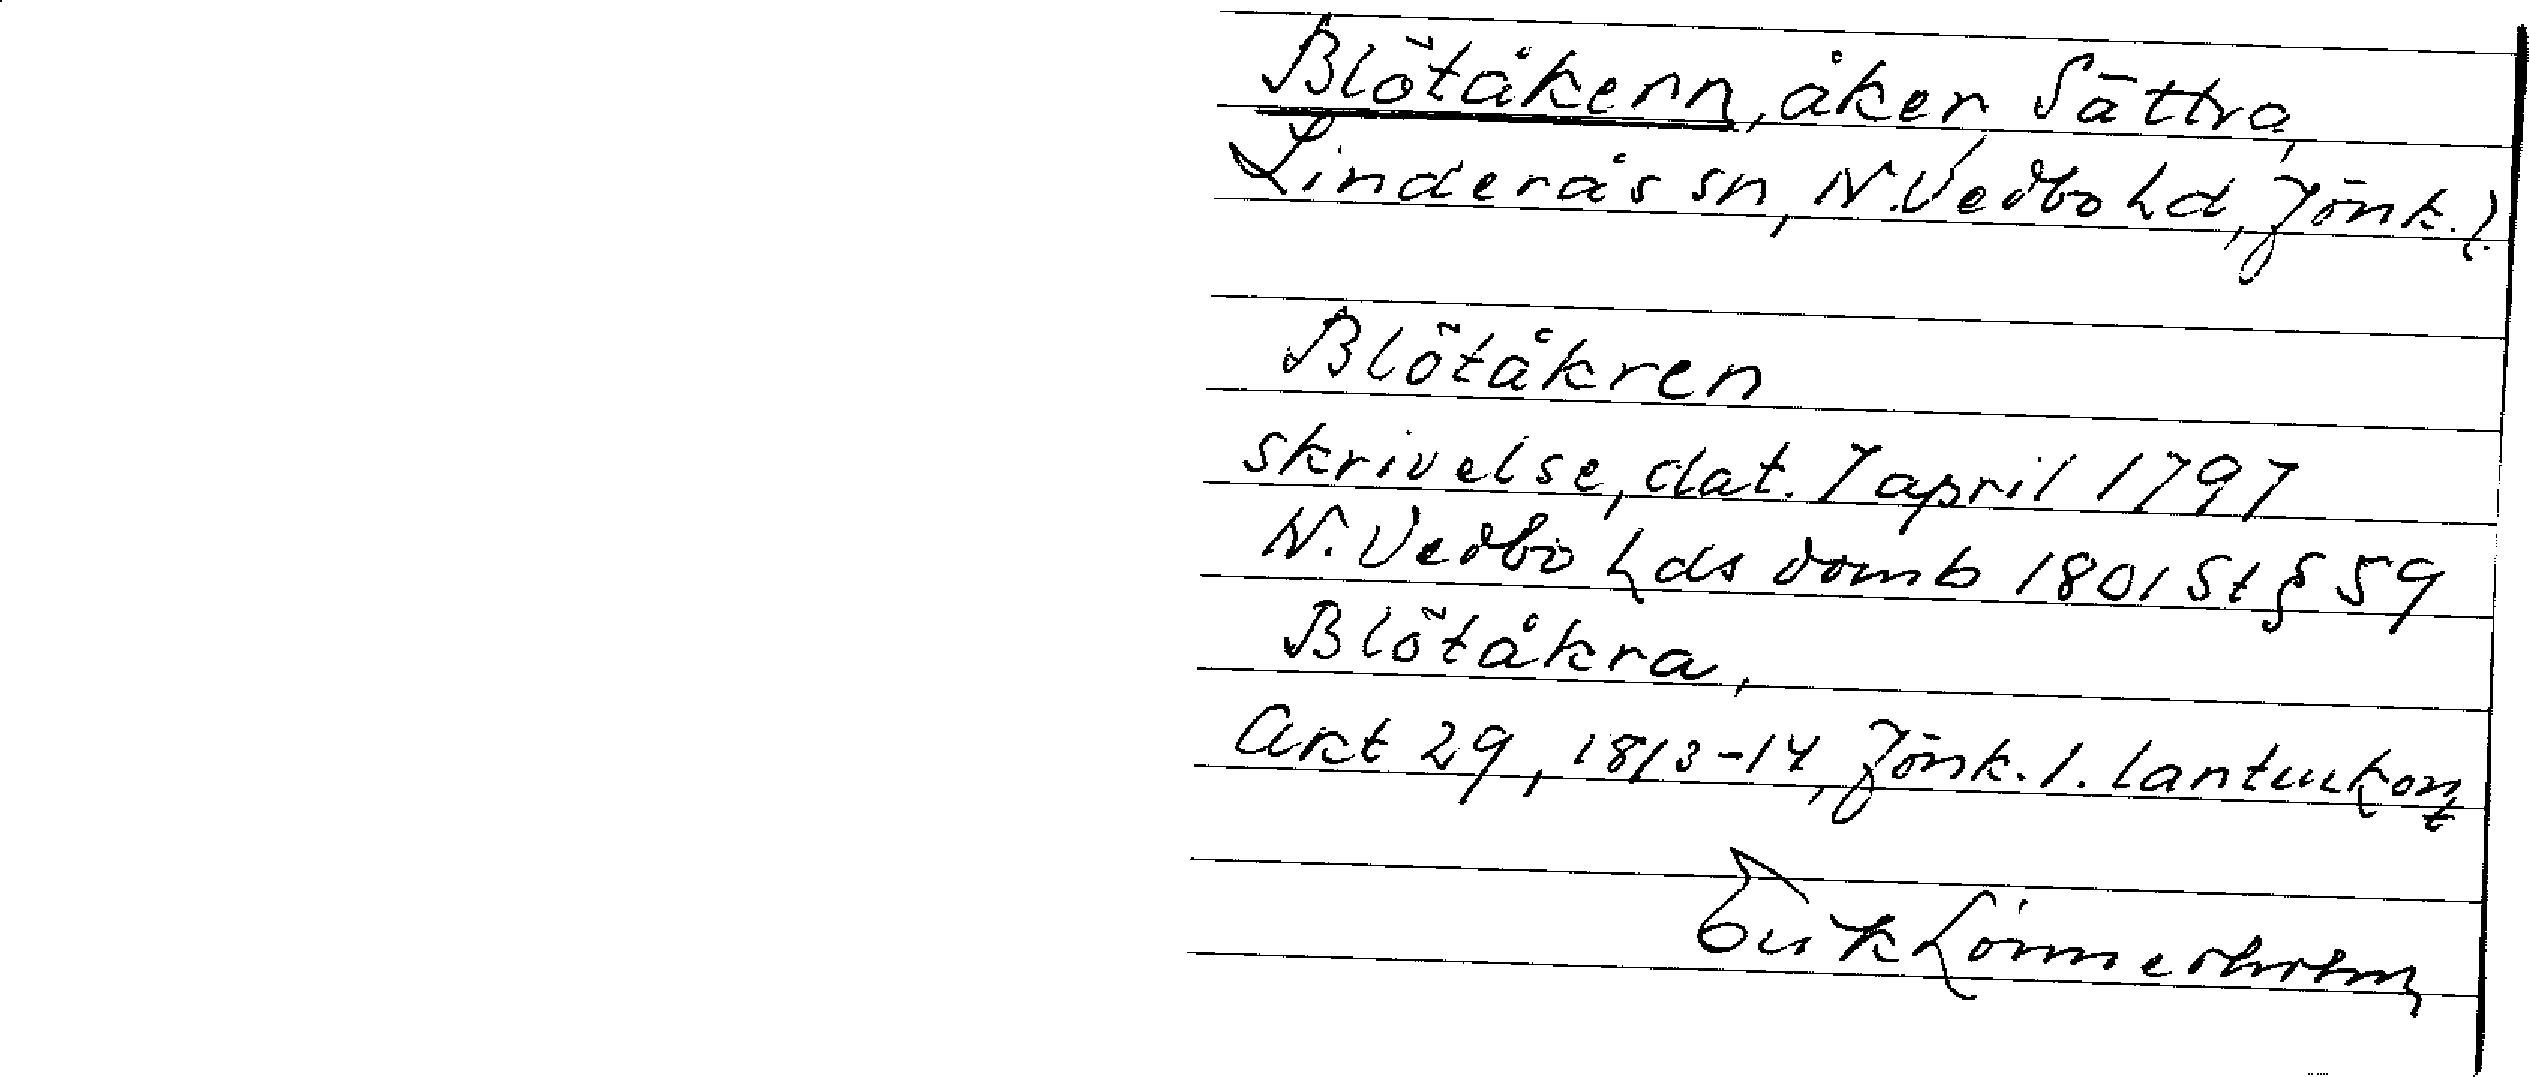 Blötåkern, åker, Sättra,
Linderås sn, N. Vedbo hd, Jönk. l.
Blötåkren
skrivelse, dat. 7 april 1797
N. Vedbo hds domb 1801 St § 59
Blötåkra,
Akt 29, 1813-14, Jönk. l. lantm kont
Erik Lönnerholm